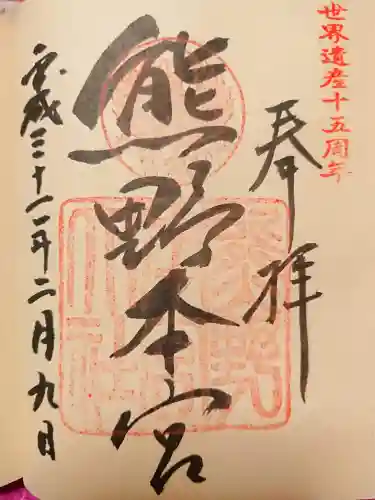 世界遺産十五周年
奉拝
熊野本宮
平成三十一年二月九日